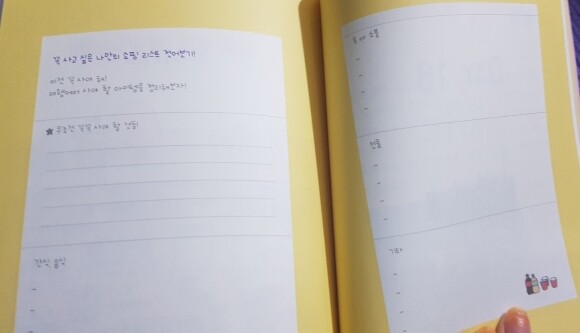 꼭 사고 싶은 나만의 쇼핑 리스트 적어보기!
이건 꼭 사야 해!
여행에서 사야 할 아이템을 정리해보자!
★ 무조건 꼭꼭 사야 할 것들!
간식, 음식
-
-
-
-
-
선물
-
-
-
-
기타
-
-
-